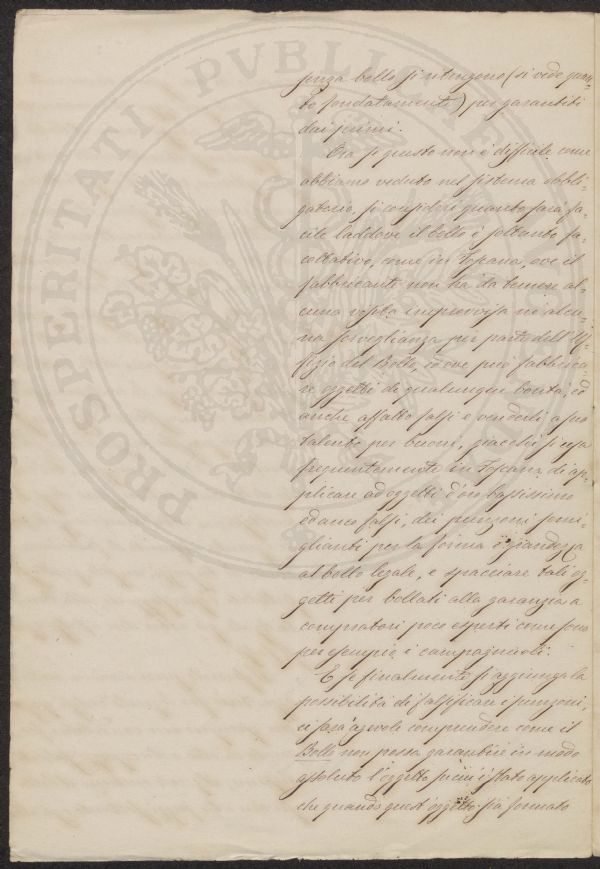 PROSPERITATI PVBLICAE
senza bollo si ritengono (si vede quan-
to fondatamente) per garantiti
dai primi.
Ora se questo non è difficile come
abbiamo veduto nel sistema obbli-
gatorio, si consideri quanto sarà fa-
cile laddove il bollo è soltanto fa-
coltativo, come in Toscana, ove il
fabbricante non ha da temere al-
cuna visita improvvisa nè alcu-
na sorveglianza per parte dell'Uf-
fizio del Bollo, ed ove può fabbrica-
re oggetti di qualunque bontà, ed
anche affatto falsi e venderli a suo
talento per buoni, giacchè si usa
frequentemente in Toscana di ap-
plicare ad oggetti d'oro bassissimo
ed anco falsi, dei punzoni somi-
glianti per la forma e grandezza
al bollo legale, e spacciare tali og-
getti per bollati alla garanzia a
compratori poco esperti come sono
per esempio i campagnuoli.
E se finalmente si aggiunga la
possibilità di falsificare i punzoni,
ci sarà agevole comprendere come il
Bollo non possa garantire in modo
assoluto l'oggetto su cui è stato applicato
che quando quest'oggetto sia formato